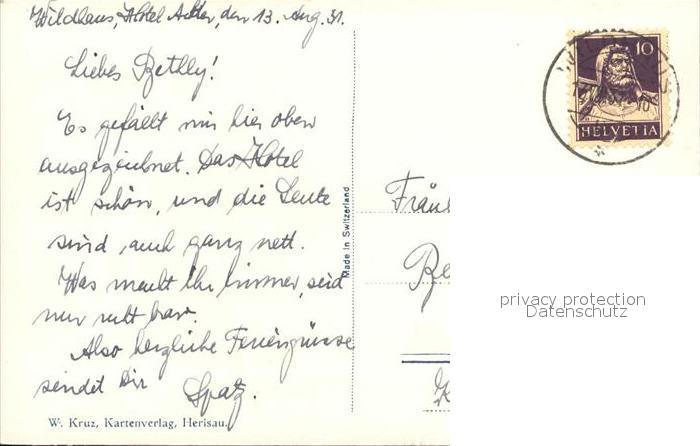 Wildhaus, Hotel Acker, den 13. Aug. 31.
Liebes Bethly!
Es gefällt mir hier oben
ausgezeichnet. Das Hotel
ist schön, und die Leute
sind auch ganz nett.
Was macht Ihr immer, seid
nur
Also herzliche Feriengrüsse
sendet Dir Spatz.
W. Kruz, Kartenverlag, Herisau.
Made in Switzerland
10
HELVETIA
Fräul
Be
privacy protection
Datenschutz